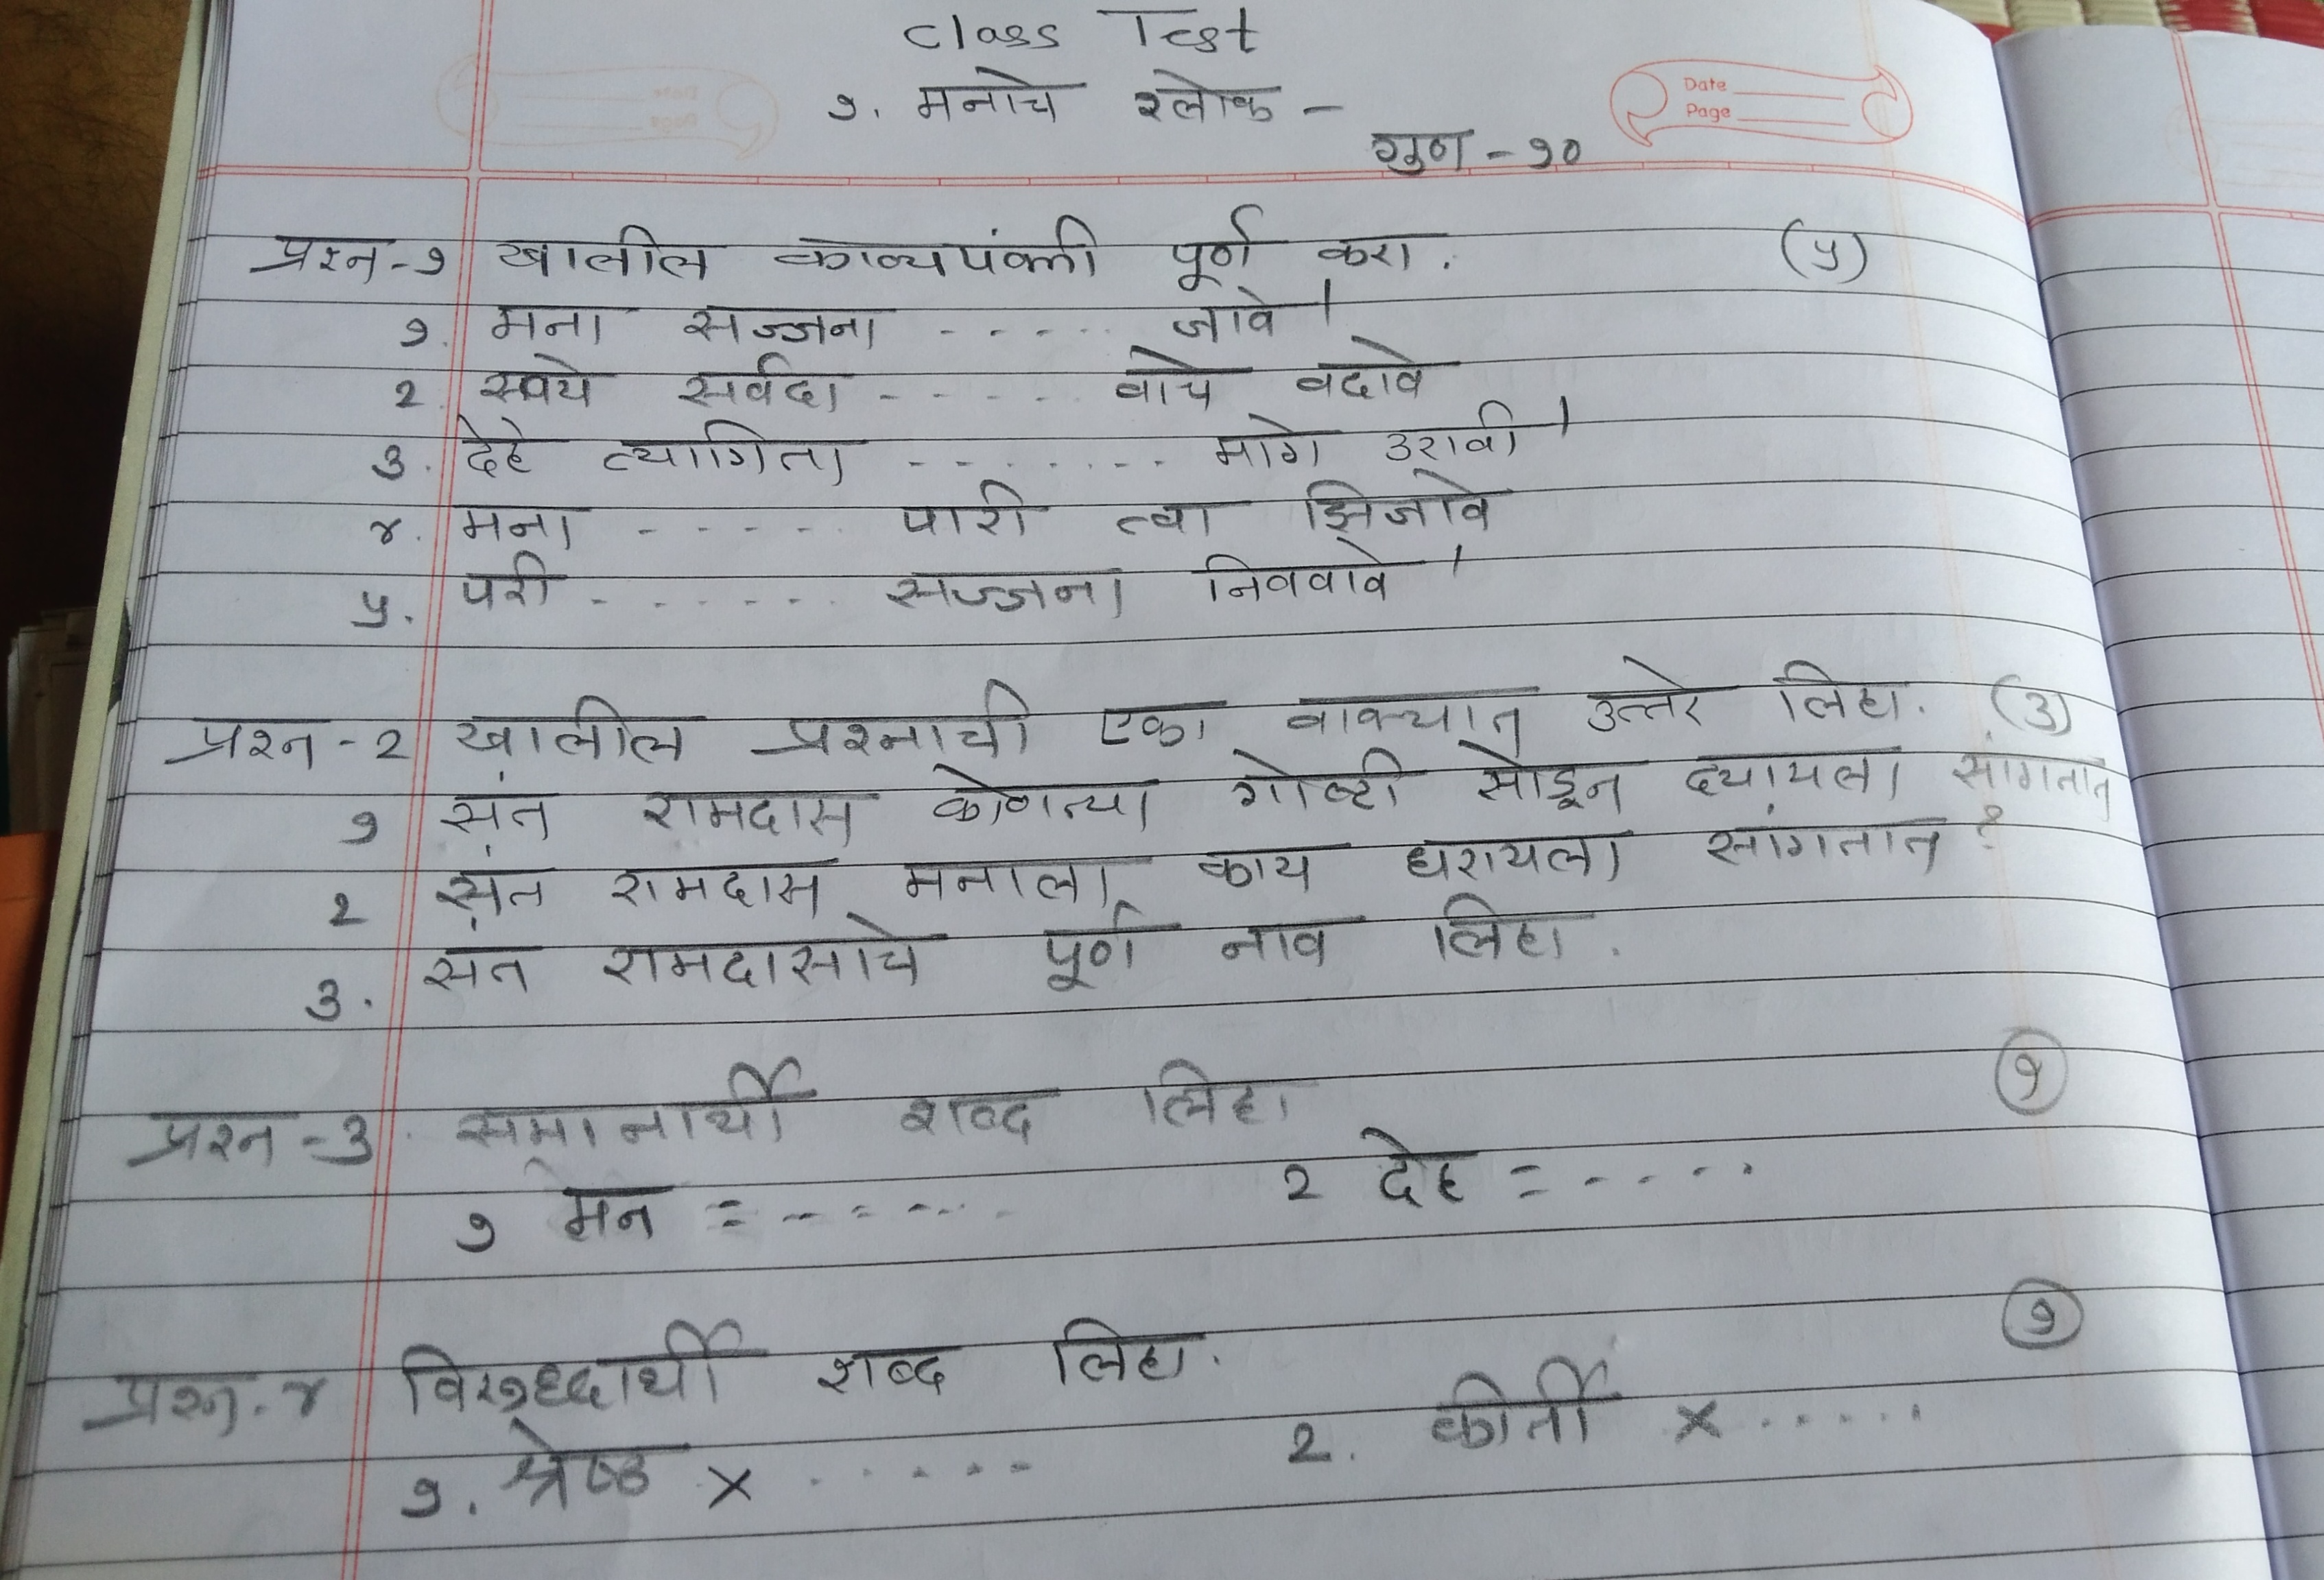 Class Test
१. मनाचे श्लोक -
Date
Page
गुण - १०
प्रश्न-१ खालील काव्यपंक्ती पूर्ण करा. (५)
१. मना सज्जना ------ जावे।
२. स्वये सर्वदा ------ वाचे वदावे
३. देहे त्यागिता -------- मागे उरावी।
४. मना ------ पारी त्वा झिजावे
५. परी -------- सज्जना निववावे।
प्रश्न-२ खालील प्रश्नाची एका वाक्यात उत्तरे लिहा. (३)
१ संत रामदास कोणत्या गोष्टी सोडून द्यायला सांगतात
२ संत रामदास मनाला काय धरायला सांगतात ?
३. संत रामदासाचे पूर्ण नाव लिहा.
प्रश्न-३. समानार्थी शब्द लिहा १
१ मन = ------ २ देह = -----
प्रश्न.४ विरुद्धार्थी शब्द लिहा. १
१. श्रेष्ठ x ------ २. कीर्ती x ......